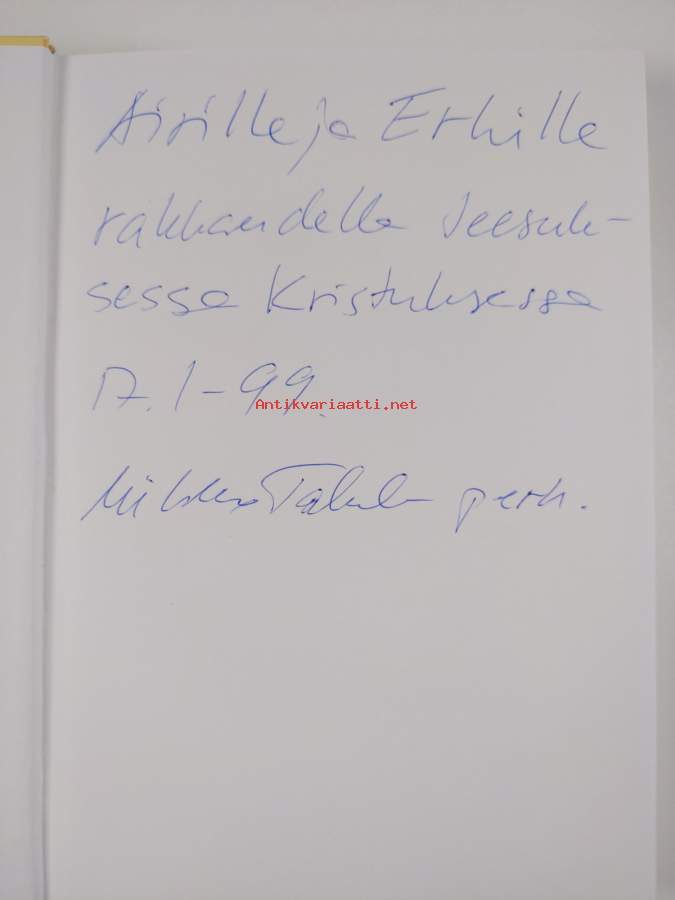 Airille ja Erkille
rakkaudella Jeesuk-
sessa Kristuksessa
17. 1 - 99.
Antikvariaatti.net
Mikko perh.